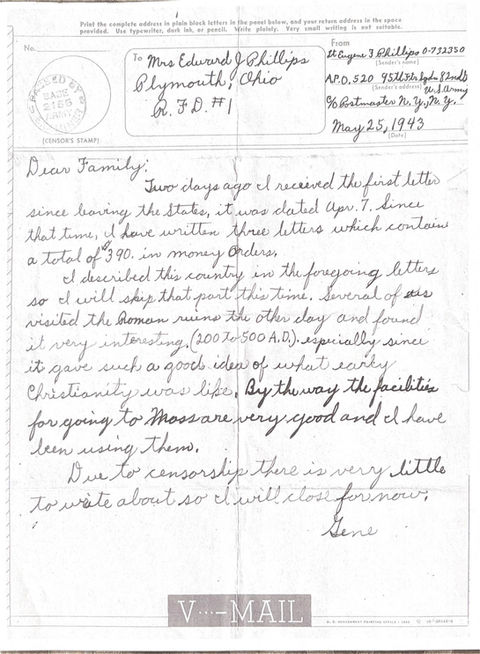 Print the complete address in plain block letters in the panel below, and your return address in the space
provided. Use typewriter, dark ink, or pencil. Write plainly. Very small writing is not suitable.
No.
PASSED BY
BASE
2166
ARMY
(CENSOR'S STAMP)
To Mrs Edward J Phillips
Plymouth, Ohio
R.F.D. #1
From
Lt Eugene F Phillips O-732350
(Sender's name)
A.P.O. 520 95th Ftr Sqdn 82nd
(Sender's address)
U.S. Army
c/o Postmaster N.Y., N.Y.
May 25, 1943
(Date)
Dear Family:
Two days ago I received the first letter
since leaving the States, it was dated Apr. 7. Since
that time, I have written three letters which contain
a total of $390. in money orders.
I described this country in the foregoing letters
so I will skip that part this time. Several of us
visited the Roman ruins the other day and found
it very interesting, (200 to 500 A.D.). especially since
it gave such a good idea of what early
Christianity was like. By the way the facilities
for going to Mass are very good and I have
been using them.
Due to censorship there is very little
to write about so I will close for now.
Gene
V···—MAIL
U. S. GOVERNMENT PRINTING OFFICE